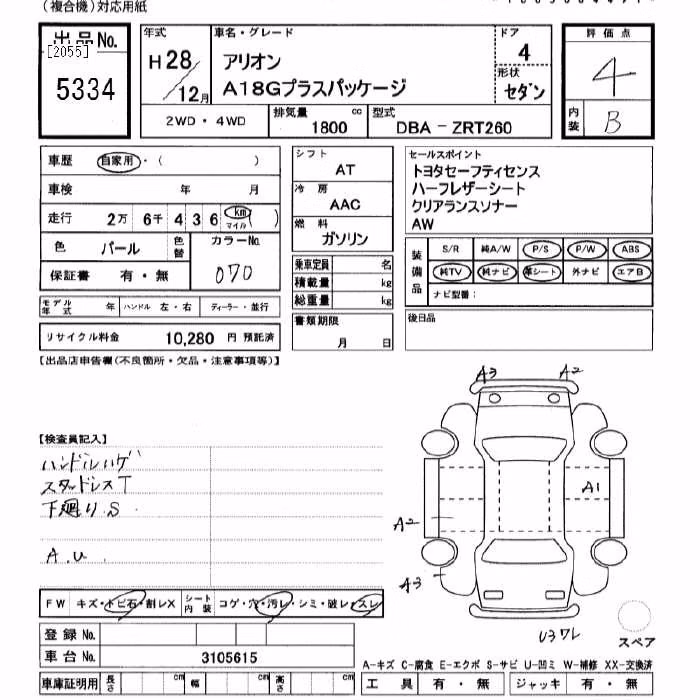 (複合機)対応用紙
出品No.
[2055]
5334
年式
H28/12月
車名・グレード
アリオン
A18Gプラスパッケージ
ドア
4
形状
セダン
評価点
4
内装
B
2WD・4WD
排気量 1800 cc
型式 DBA－ZRT260
車歴 自家用・( )
車検 年 月
走行 2万 6千 4 3 6 (km マイル)
色 パール 色替
カラーNo.
070
保証書 有・無
モデル年式 年 ハンドル 左・右 ディーラー・並行
リサイクル料金 10,280 円 預託済
シフト
AT
冷房
AAC
燃料
ガソリン
乗車定員 名
積載量 kg
総重量 kg
書類期限
月 日
セールスポイント
トヨタセーフティセンス
ハーフレザーシート
クリアランスソナー
AW
装備品
S/R 純A/W P/S P/W ABS
純TV 純ナビ 革シート 外ナビ エアB
ナビ型番：
後日品
【出品店申告欄(不良箇所・欠品・注意事項等)】
【検査員記入】
ハンドルハゲ
スタッドレスT
下廻りS
A.U
A3 A2
A1
A2
A3
U3ワレ
スペア
FW キズ・トビ石・割レX シート内装 コゲ・穴・汚レ・シミ・破レ・スレ
登録No.
車台No. 3105615
車庫証明用 長さ cm 幅 cm 高さ cm
A-キズ C-腐食 E-エクボ S-サビ U-凹ミ W-補修 XX-交換済
工具 有・無 ジャッキ 有・無